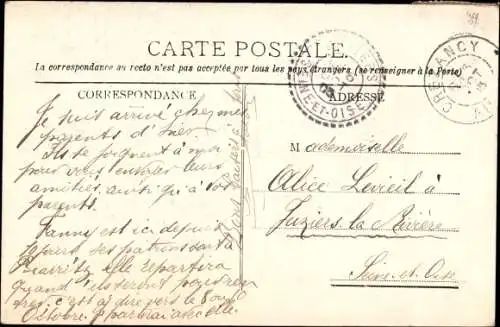 CARTE POSTALE.
La correspondance au recto n'est pas acceptée par tous les pays étrangers (se renseigner à la Poste)
CORRESPONDANCE
ADRESSE
CREZANCY
ET-OISE
Je suis arrivé chez mes
parents d'hier
Ils se joignent à moi
pour vous envoyer leurs
amitiés, ainsi qu'à vos
parents.
Fanny est ici depuis
jours, ses patrons sont à
Biarritz elle repartira
quand ils seront
c'est à dire vers le 8 ou
Octobre. Je partirai avec elle.
Mademoiselle
Alice Levieil à
Juziers la Rivière
Seine-et-Oise